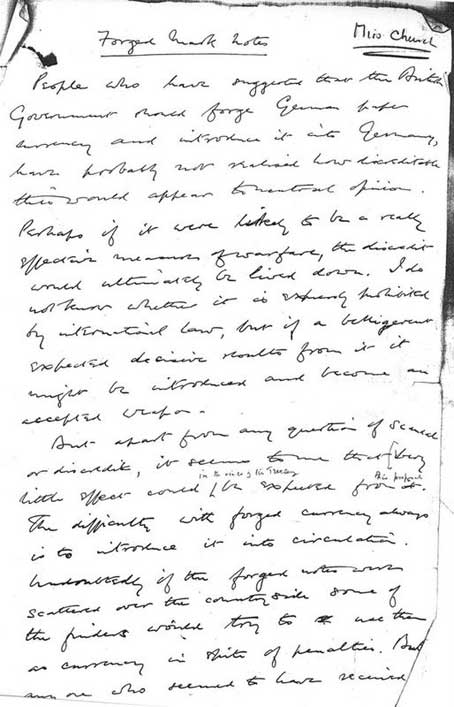 Miss Church
Forged Mark Notes
People who have suggested that the British
Government should forge German paper
currency and introduce it into Germany,
have probably not realised how discreditable
this would appear to neutral opinion.
Perhaps if it were likely to be a really
effective measure of warfare, the discredit
would ultimately be lived down. I do
not know whether it is expressly prohibited
by international law, but if a belligerent
expected decisive results from it it
might be introduced and become an
accepted weapon.
But apart from any question of scandal
or discredit, it seems to me that very
in the view of the Treasury this proposal
little effect could be expected from it.
The difficulty with forged currency always
is to introduce it into circulation.
Undoubtedly if the forged notes were
scattered over the countryside some of
the finders would try to use them
as currency in spite of penalties. But
any one who seemed to have received